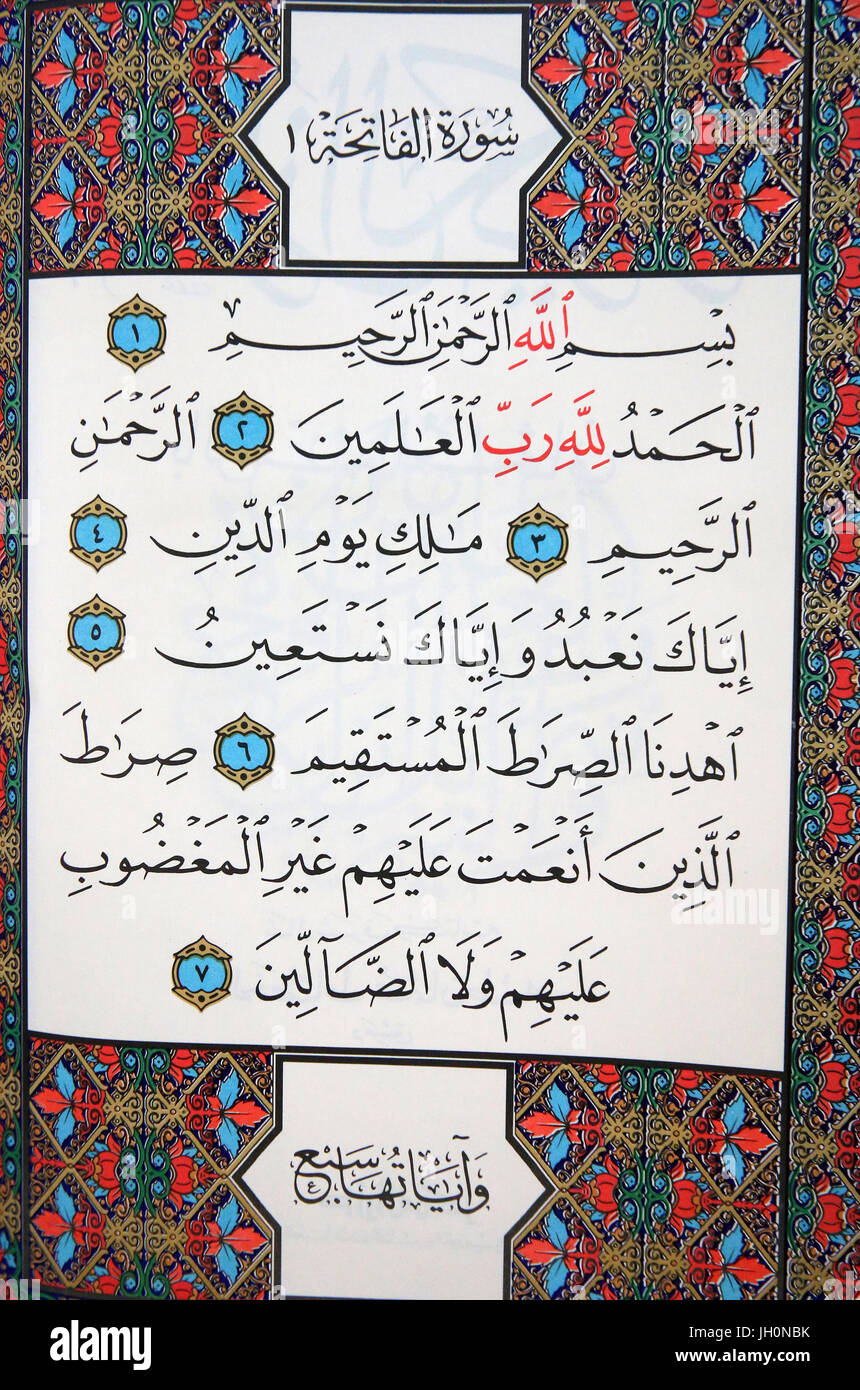 سُورَةُ الفَاتِحَةِ ١
بِسْمِ ٱللَّهِ ٱلرَّحْمَٰنِ ٱلرَّحِيمِ ١
ٱلْحَمْدُ لِلَّهِ رَبِّ ٱلْعَٰلَمِينَ ٢ ٱلرَّحْمَٰنِ
ٱلرَّحِيمِ ٣ مَٰلِكِ يَوْمِ ٱلدِّينِ ٤
إِيَّاكَ نَعْبُدُ وَإِيَّاكَ نَسْتَعِينُ ٥
ٱهْدِنَا ٱلصِّرَٰطَ ٱلْمُسْتَقِيمَ ٦ صِرَٰطَ
ٱلَّذِينَ أَنْعَمْتَ عَلَيْهِمْ غَيْرِ ٱلْمَغْضُوبِ
عَلَيْهِمْ وَلَا ٱلضَّآلِّينَ ٧
وَآيَاتُهَا سَبْعٌ
alamy
alamy
a alamy stock photo
JH0NBK
www.alamy.com